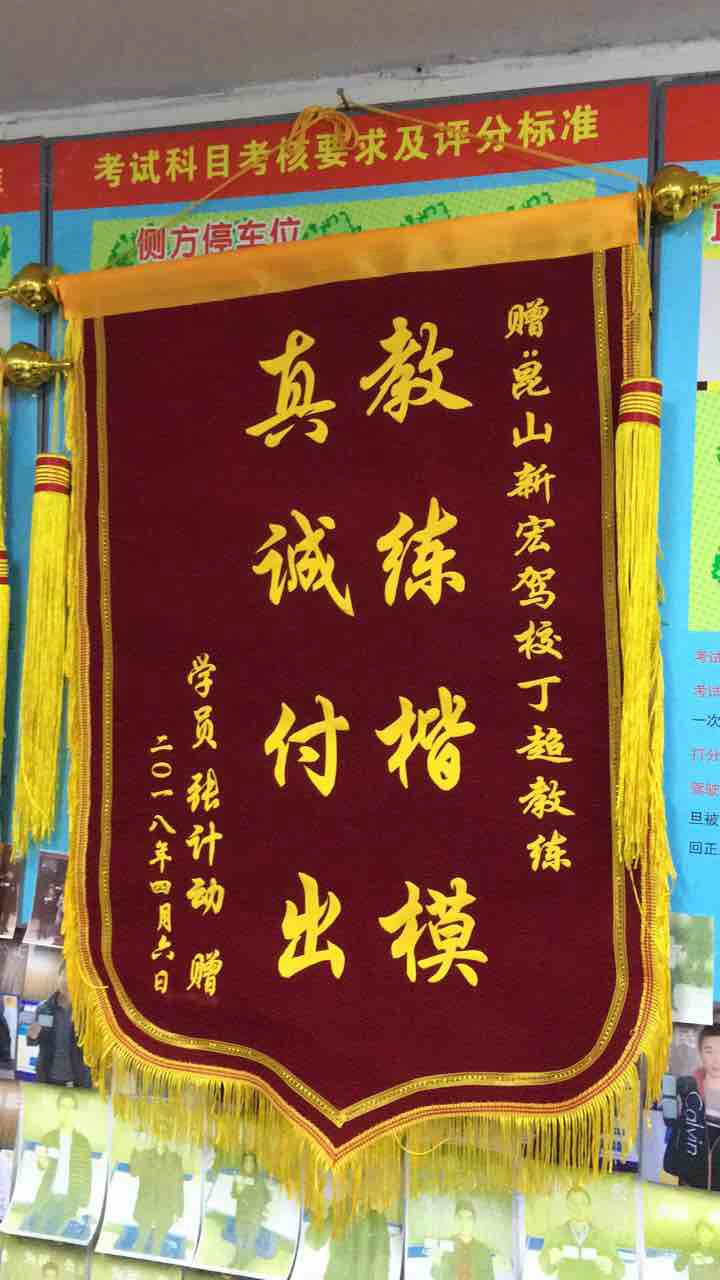 考试科目考核要求及评分标准
侧方停车位
赠:昆山新宏驾校丁超教练
教练楷模
真诚付出
学员 张计动 赠
二〇一八年四月六日
考试
考试
一次
打分
驾驶
旦被
回正
Calvin